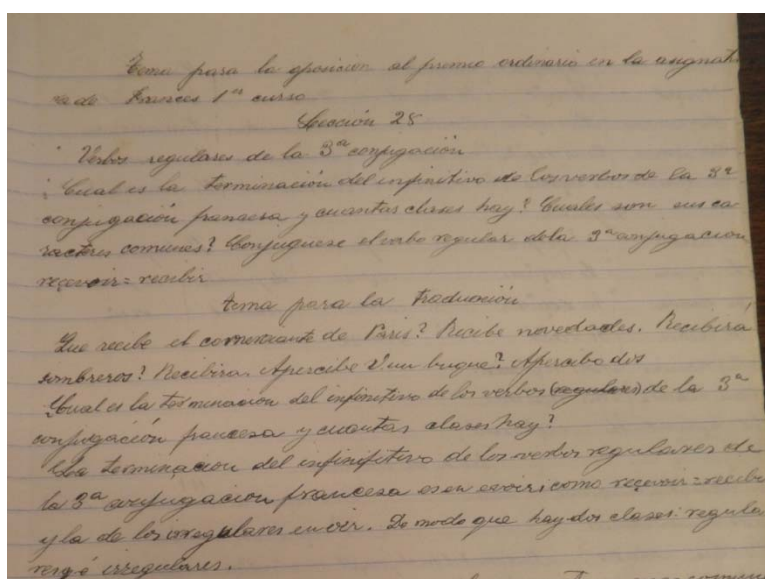 Tema para la oposicion al premio ordinario en la asignatu
ra de Frances 1er curso
Lección 28
Verbos regulares de la 3ª conjugación
¿Cual es la terminación del infinitivo de los verbos de la 3ª
conjugación francesa y cuantas clases hay? Cuales son sus ca
racteres comunes? Conjuguese el verbo regular de la 3ª conjugacion
reçevoir = recibir
tema para la traducción
Que recibe el comerciante de Paris? Recibe novedades. Recibirá
sombreros? Recibira. Apercibe V un buque? Apercibo dos
¿Cual es la terminacion del infinitivo de los verbos (regulares) de la 3ª
conjugación francesa y cuantas clases hay?
La terminacion del infinifitivo de los verbos regulares de
la 3ª conjugacion francesa es en evoir, como reçevoir = recibir
y la de los irregulares en oir. De modo que hay dos clases: regula
res é irregulares.